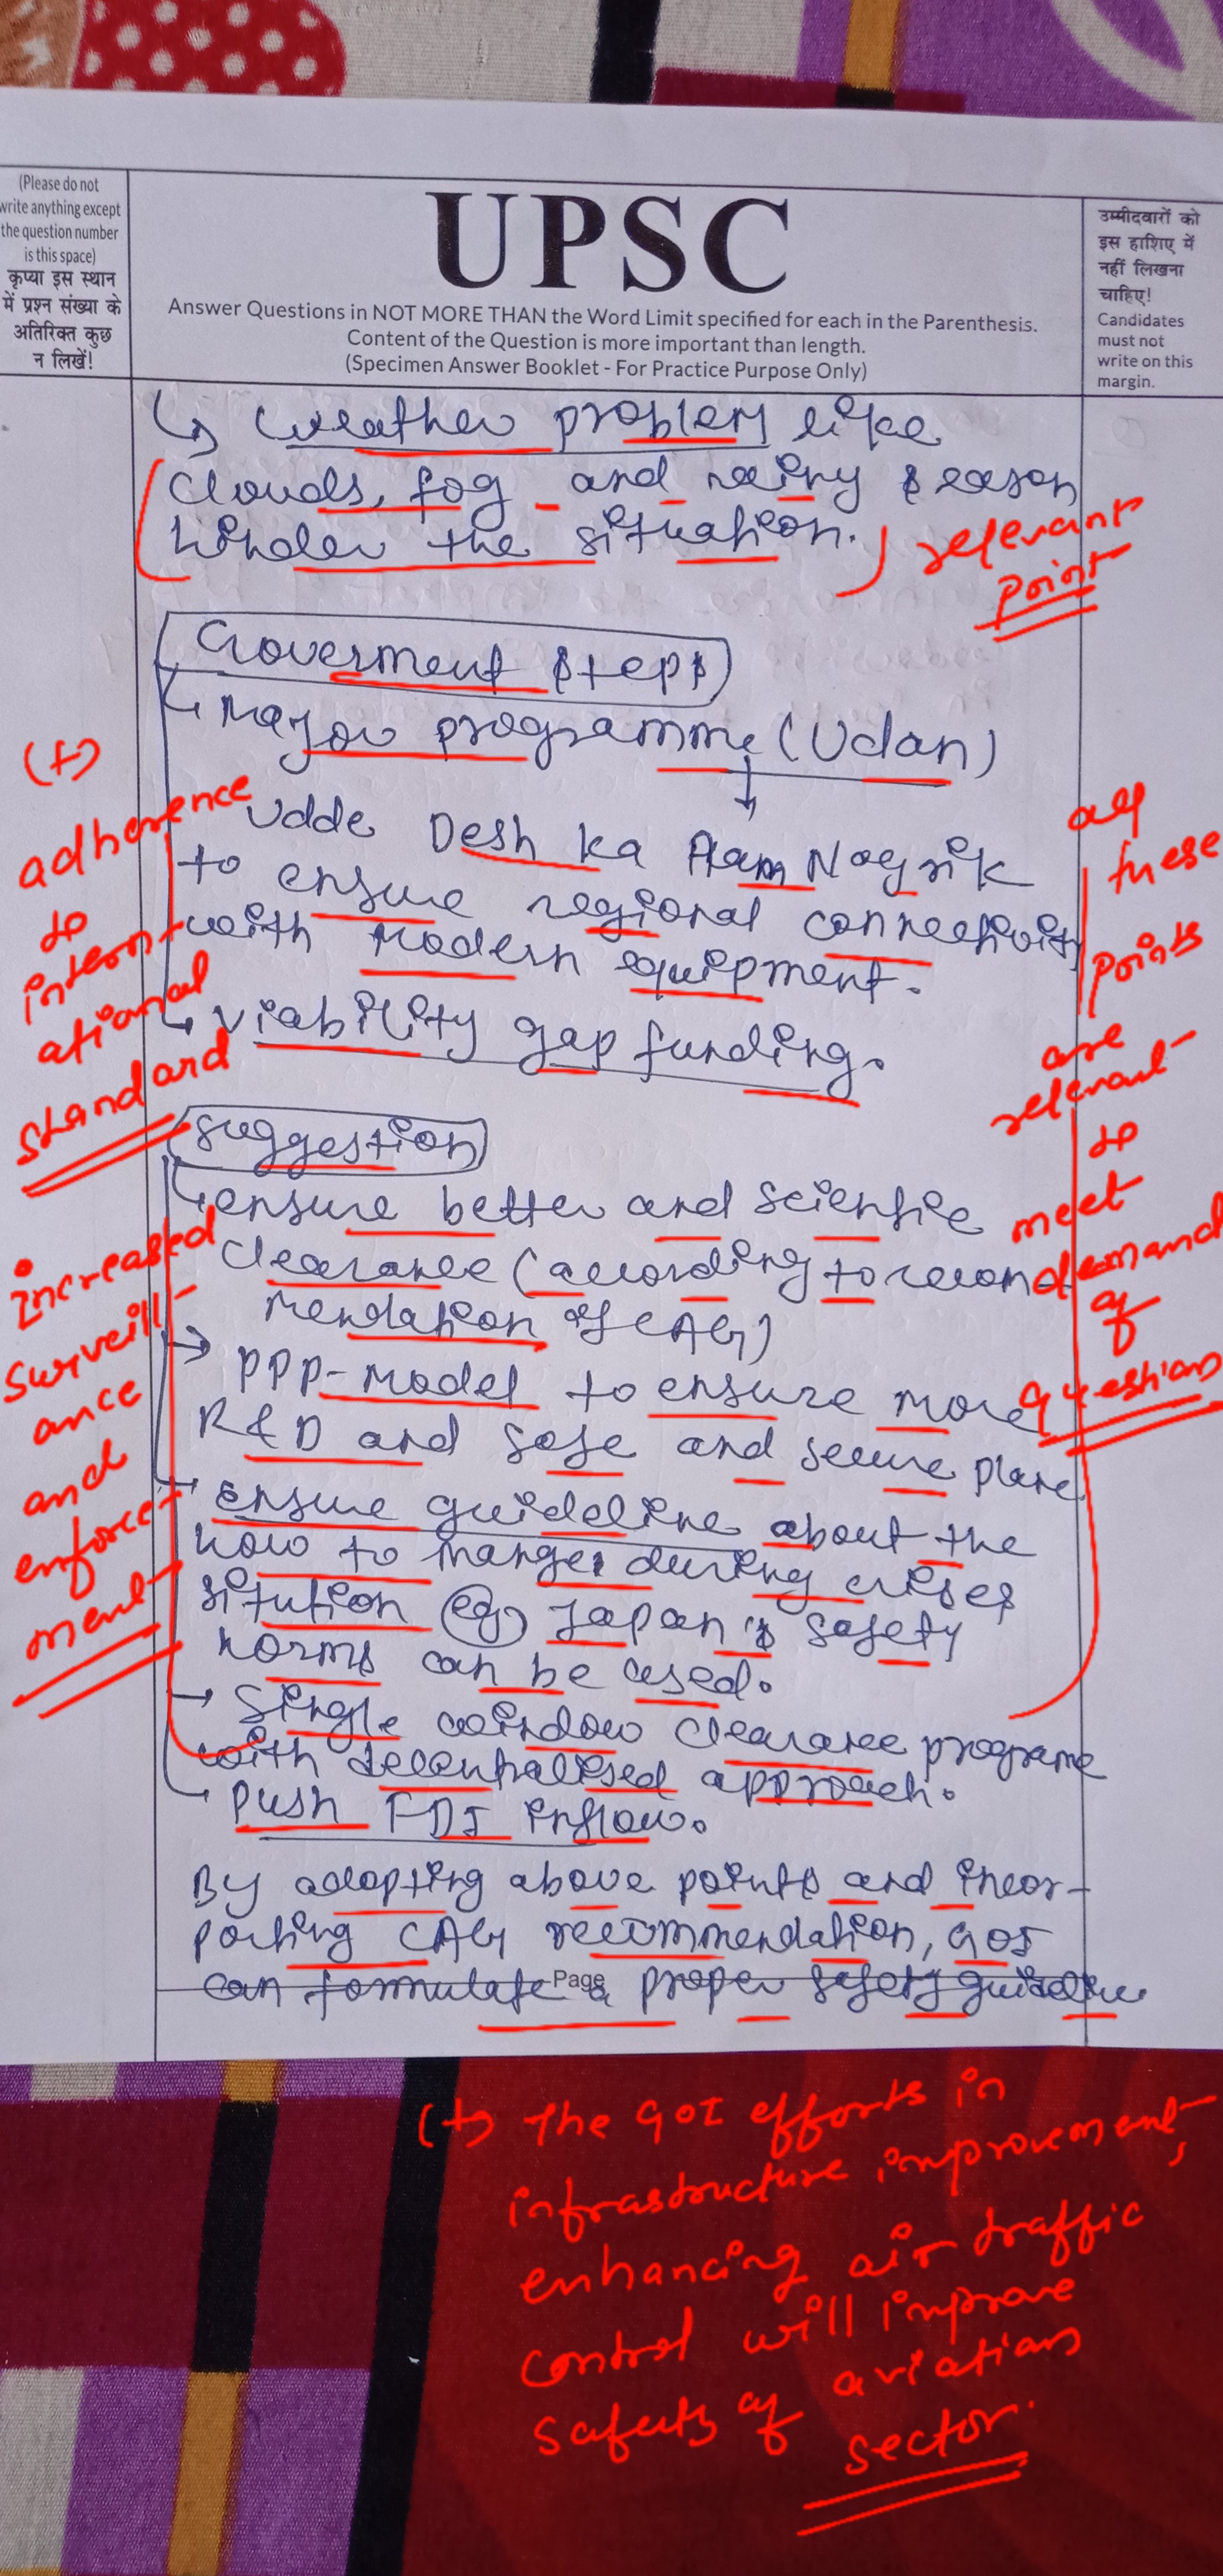 (Please do not
write anything except
the question number
is this space)
कृप्या इस स्थान
में प्रश्न संख्या के
अतिरिक्त कुछ
न लिखें!
UPSC
Answer Questions in NOT MORE THAN the Word Limit specified for each in the Parenthesis.
Content of the Question is more important than length.
(Specimen Answer Booklet - For Practice Purpose Only)
उम्मीदवारों को
इस हाशिए में
नहीं लिखना
चाहिए!
Candidates
must not
write on this
margin.
↳ Weather problem like
clouds, fog and rainy season
hinder the situation.
relevant
point
Goverment steps
↳ Major programme (Udan)
Udde Desh ka Aam Nagrik
to ensure regional connectivity
with modern equipment.
↳ viability gap funding.
(+)
adherence
to
intern-
ational
standard
all
these
points
are
relevant
to
meet
demand
of
question
suggestion
↳ ensure better and scientific
clearance (according to recom
mendation of CAG)
→ PPP-model to ensure more
R&D and safe and secure plane
→ Ensure guideline about the
how to mange during crises
sitution eg) Japan's safety
norms can be used.
→ Single window clearance programe
with decentralised approach.
↳ Push FDI inflow.
• increased
surveill-
ance
and
enforce-
ment
By adopting above points and incor-
porting CAG recommendation, GOI
can formulate a proper safety guideline
Page
(+) The GOI efforts in
infrastructure improvement,
enhancing air traffic
control will improve
safety of aviation
sector.